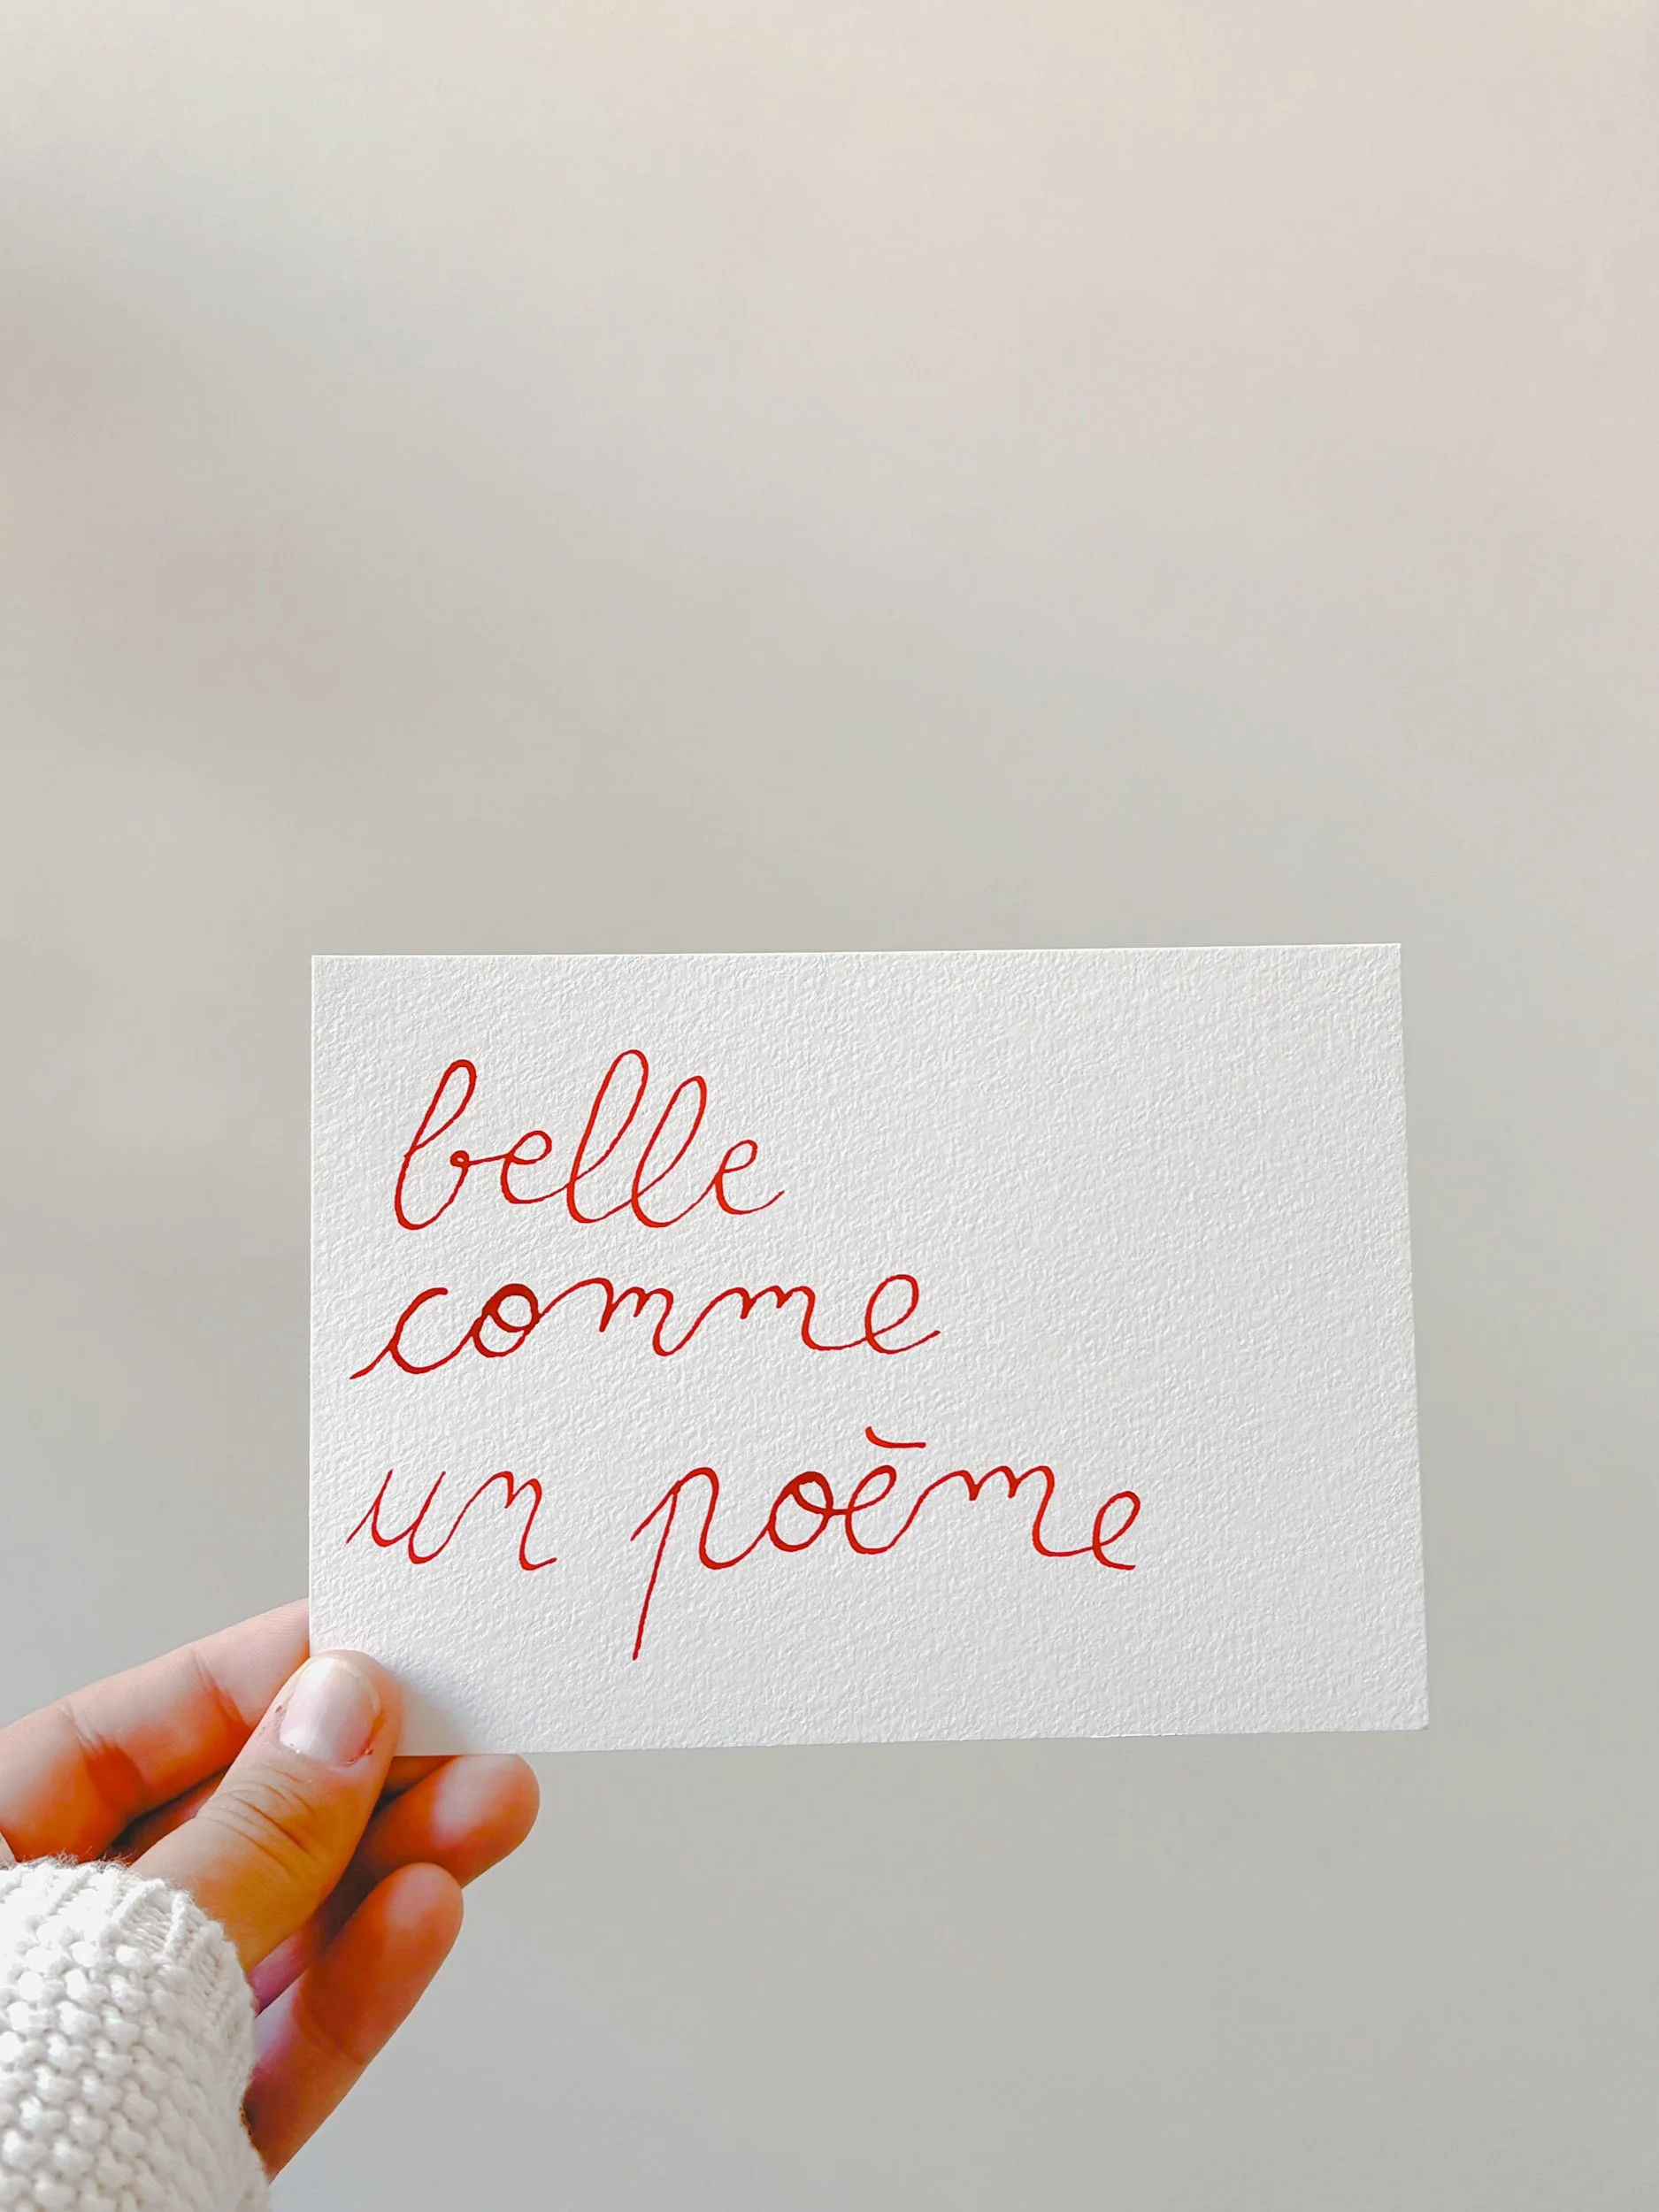 belle
comme
un poème